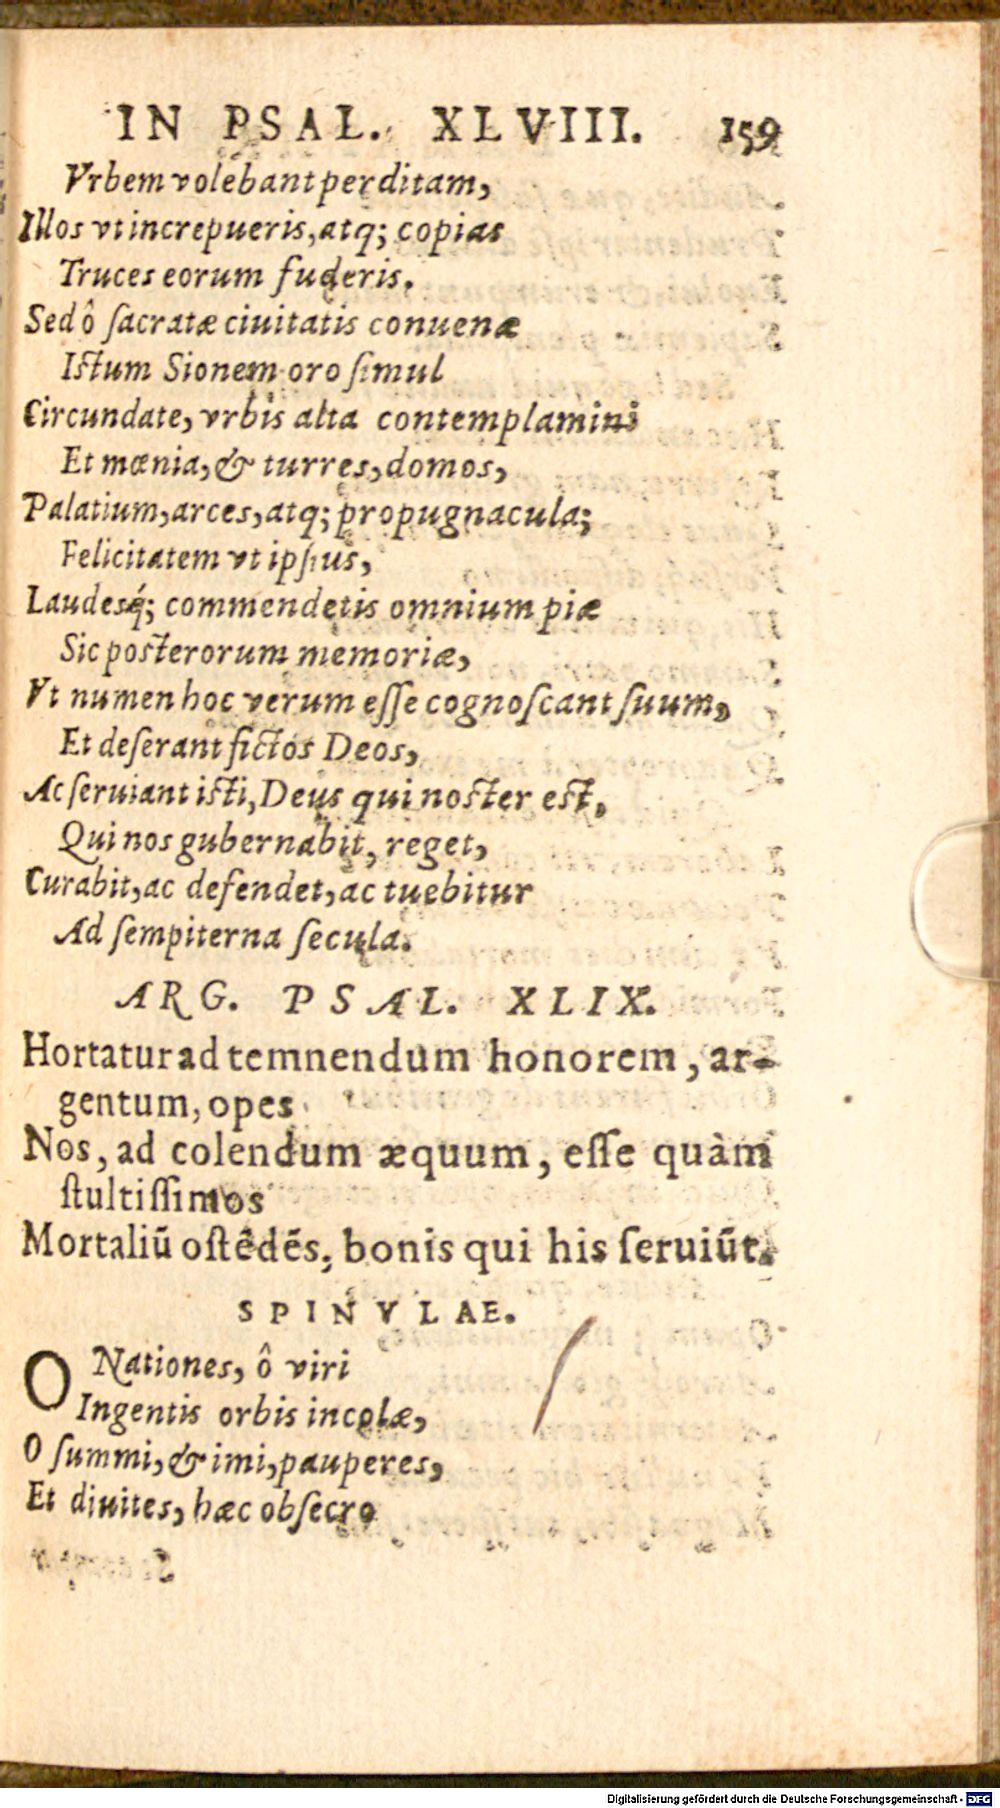 IN PSAL. XLVIII. 159
Vrbem volebant perditam,
Illos vt increpueris, atq; copias
Truces eorum fuderis.
Sed ô ſacratæ ciuitatis conuenæ
Iſtum Sionem oro ſimul
Circundate, vrbis alta contemplamini
Et mœnia, & turres, domos,
Palatium, arces, atq; propugnacula;
Felicitatem vt ipſius,
Laudesq́; commendetis omnium piæ
Sic poſterorum memoriæ,
Vt numen hoc verum eſſe cognoſcant ſuum,
Et deſerant fictos Deos,
Ac ſeruiant iſti, Deus qui noſter eſt,
Qui nos gubernabit, reget,
Curabit, ac defendet, ac tuebitur
Ad ſempiterna ſecula.
ARG. PSAL. XLIX.
Hortatur ad temnendum honorem, ar-
gentum, opes
Nos, ad colendum æquum, eſſe quàm
ſtultiſſimos
Mortaliū oſtēdēs, bonis qui his ſeruiūt.
SPINVLAE.
O Nationes, ô viri
Ingentis orbis incolæ,
O ſummi, & imi, pauperes,
Et diuites, hæc obſecro
Digitalisierung gefördert durch die Deutsche Forschungsgemeinschaft - DFG